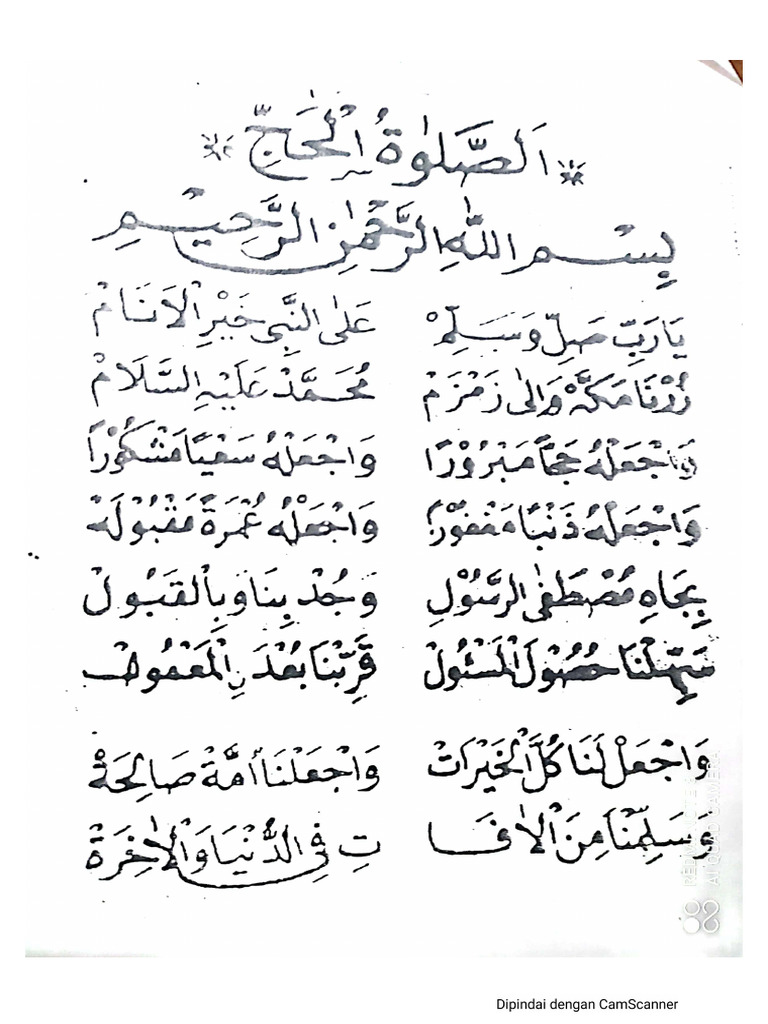 * اَلصَّلٰوةُ الْحَجِّ *
بِسْمِ اللّٰهِ الرَّحْمٰنِ الرَّحِيْمِ
يَارَبِّ صَلِّ وَسَلِّمْ عَلَى النَّبِى خَيْرِ الْاَنَامْ
زُرْنَا مَكَّهْ وَالٰى زَمْزَمْ مُحَمَّدْ عَلَيْهِ السَّلَامْ
وَاجْعَلْهُ حَجًّا مَبْرُوْرًا وَاجْعَلْهُ سَعْيًا مَشْكُوْرًا
وَاجْعَلْهُ ذَنْبًا مَغْفُوْرًا وَاجْعَلْهُ عُمْرَةً مَقْبُولَهْ
بِجَاهِ مُصْطَفٰى الرَّسُوْلِ وَجُدْ بِنَا وَبِالْقَبُولْ
سَهِّلْنَا حُصُوْلَ الْمَسْئُولْ قَرِّبْنَا بُعْدَنِ الْمَغْمُوضْ
وَاجْعَلْ لَنَا كُلَّ الْخَيْرَاتْ وَاجْعَلْنَا اُمَّةْ صَالِحَةْ
وَسَلِّمْنَا مِنَ الْاٰفَا تِ فِى الدُّنْيَا وَالْاٰخِرَةْ
REDMI NOTE
AI QUAD CAMERA
Dipindai dengan CamScanner